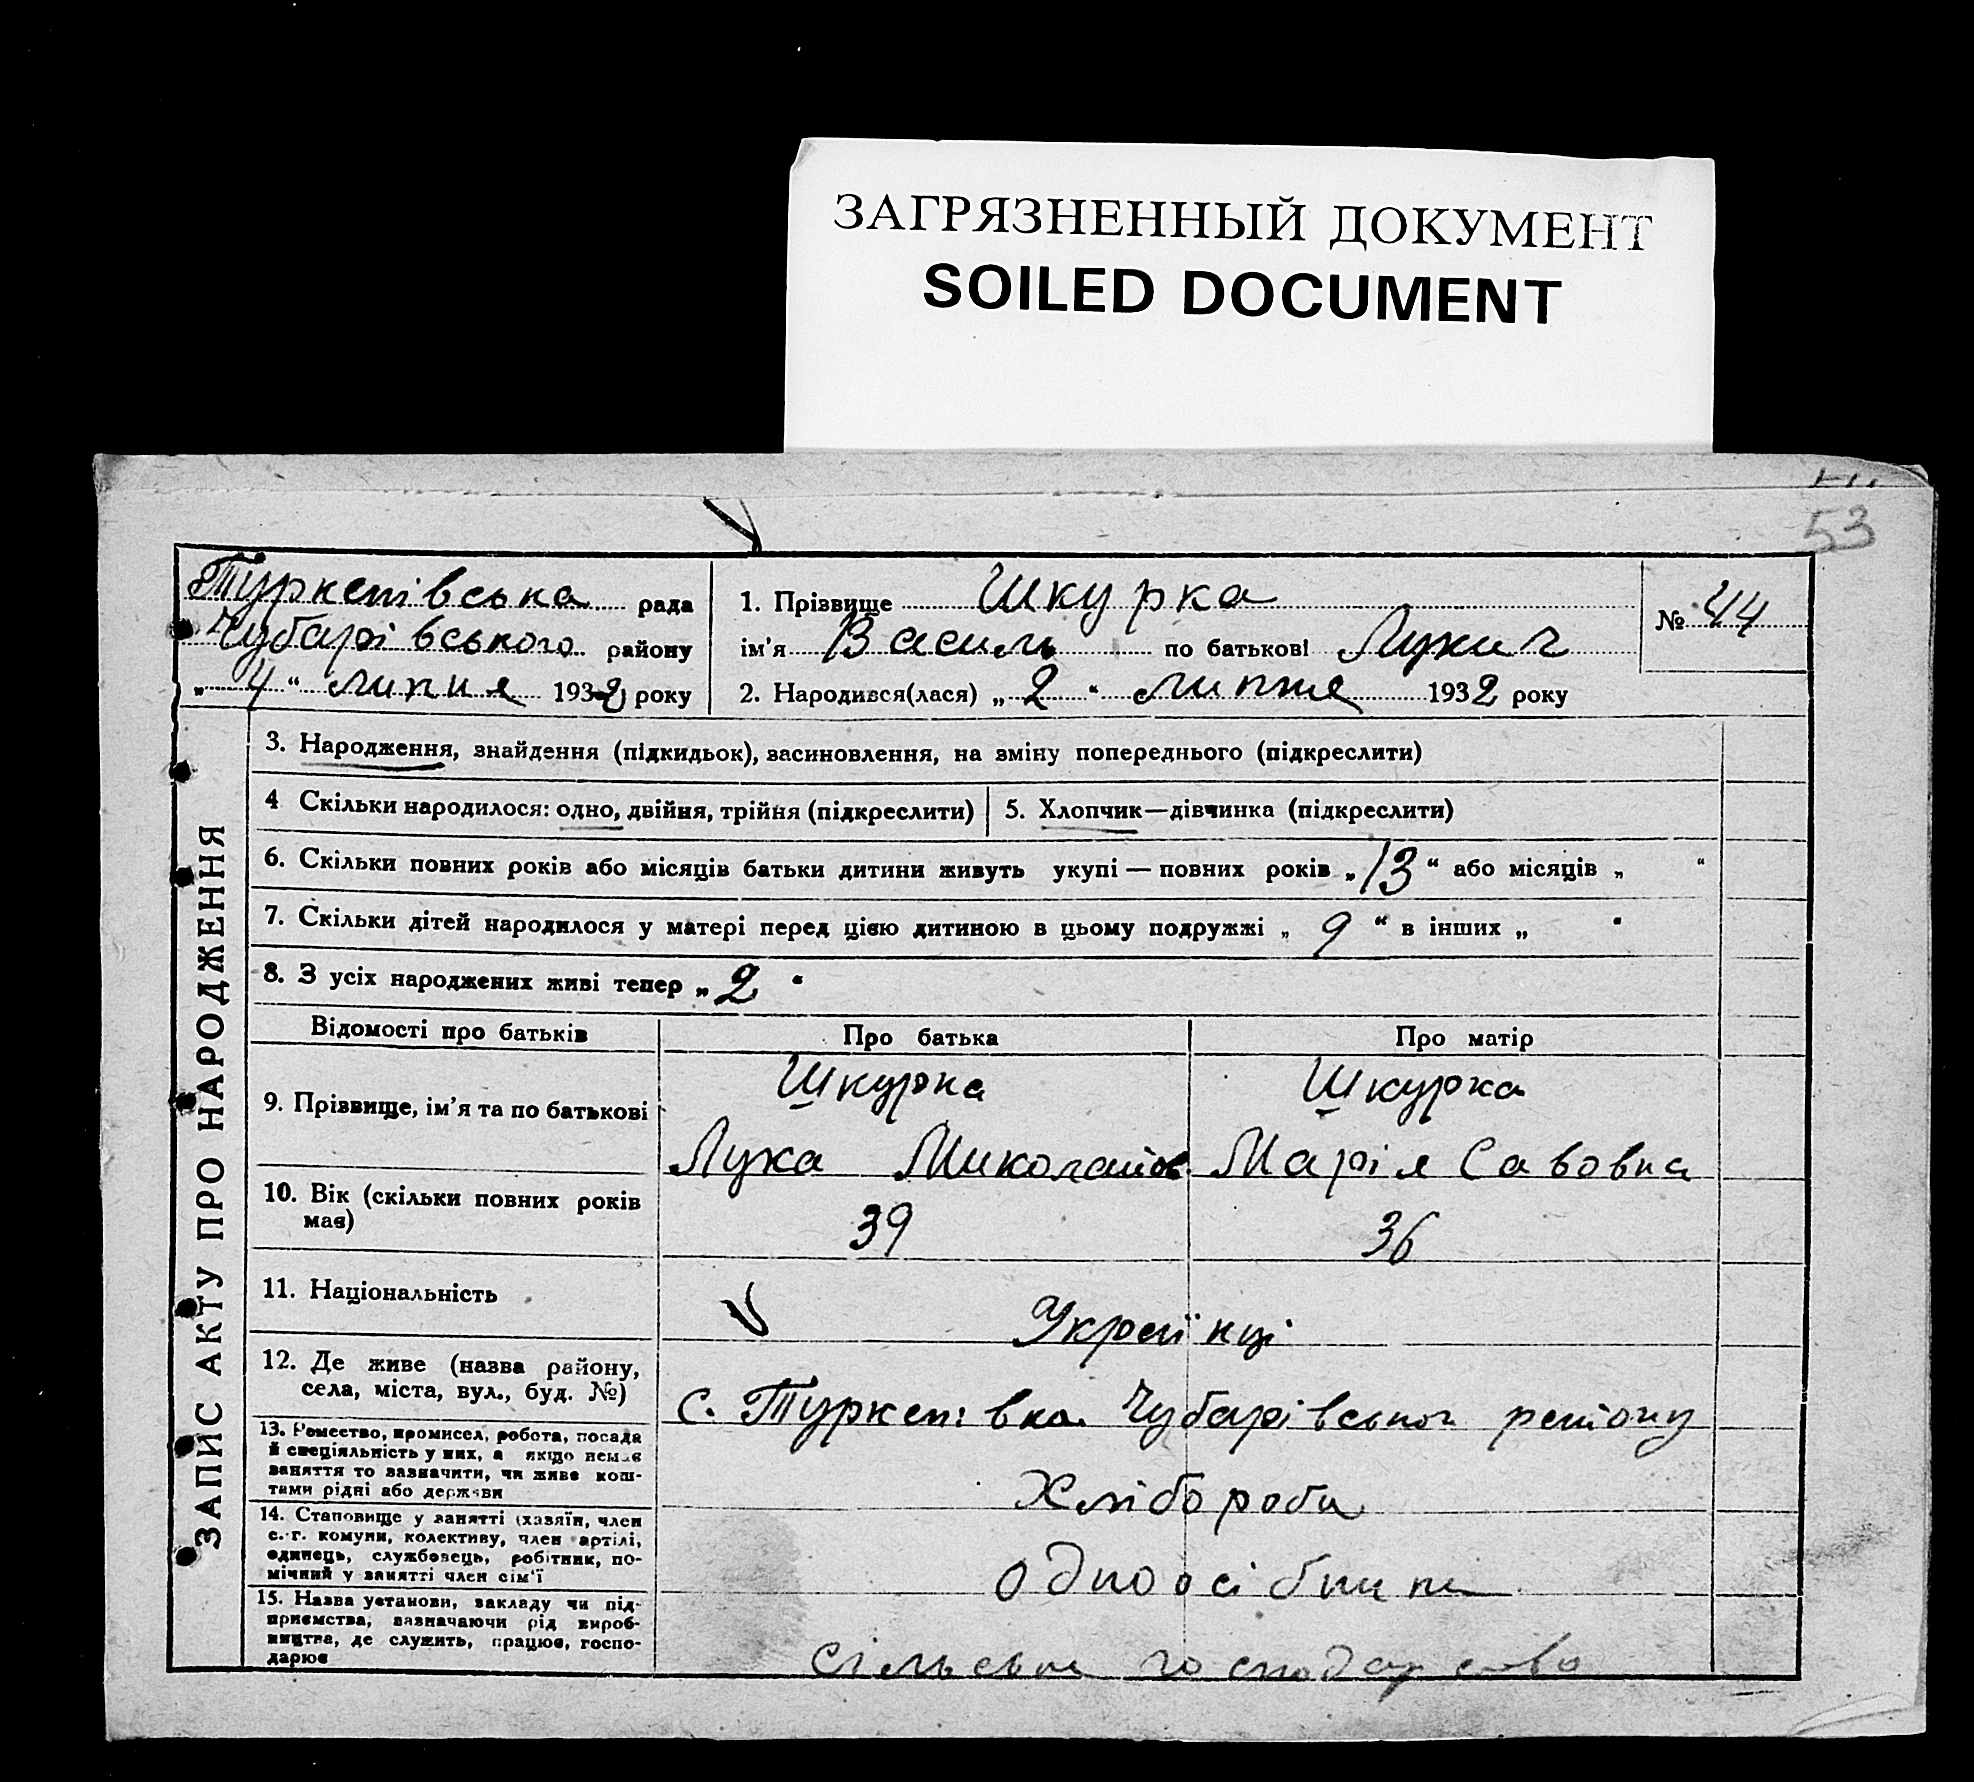 ЗАГРЯЗНЕННЫЙ ДОКУМЕНТ
SOILED DOCUMENT
53
Туркенівська рада
Чубарівського району
„ 4 “ липня 1932 року
1. Прізвище Шкурка
ім’я Василь по батькові Лукич
2. Народився(лася) „ 2 “ липня 1932 року
№ 44
ЗАПИС АКТУ ПРО НАРОДЖЕННЯ
3. Народження, знайдення (підкидьок), засиновлення, на зміну попереднього (підкреслити)
4 Скільки народилося: одно, двійня, трійня (підкреслити) 5. Хлопчик—дівчинка (підкреслити)
6. Скільки повних років або місяців батьки дитини живуть укупі — повних років „ 13 “ або місяців „ “
7. Скільки дітей народилося у матері перед цією дитиною в цьому подружжі „ 9 “ в інших „ “
8. З усіх народжених живі тепер „ 2 “
Відомості про батьків Про батька Про матір
9. Прізвище, ім’я та по батькові
Шкурка Шкурка
Лука Миколайов Марія Савовна
10. Вік (скільки повних років
має)
39 36
11. Національність
Українці
12. Де живе (назва району,
села, міста, вул., буд. №)
с. Туркенівка Чубарівського району
13. Ремество, промисел, робота, посада
й спеціяльність у них, а якщо немає
заняття то зазначити, чи живе кош-
тами рідні або держави
Хлібороби
14. Становище у занятті (хазяїн, член
с.-г. комуни, колективу, член артілі,
одинець, службовець, робітник, по-
мічний у занятті член сім’ї
одноосібники
15. Назва установи, закладу чи під-
приємства, зазначаючи рід вироб-
ництва, де служить, працює, госпо-
дарює
сільське господарство